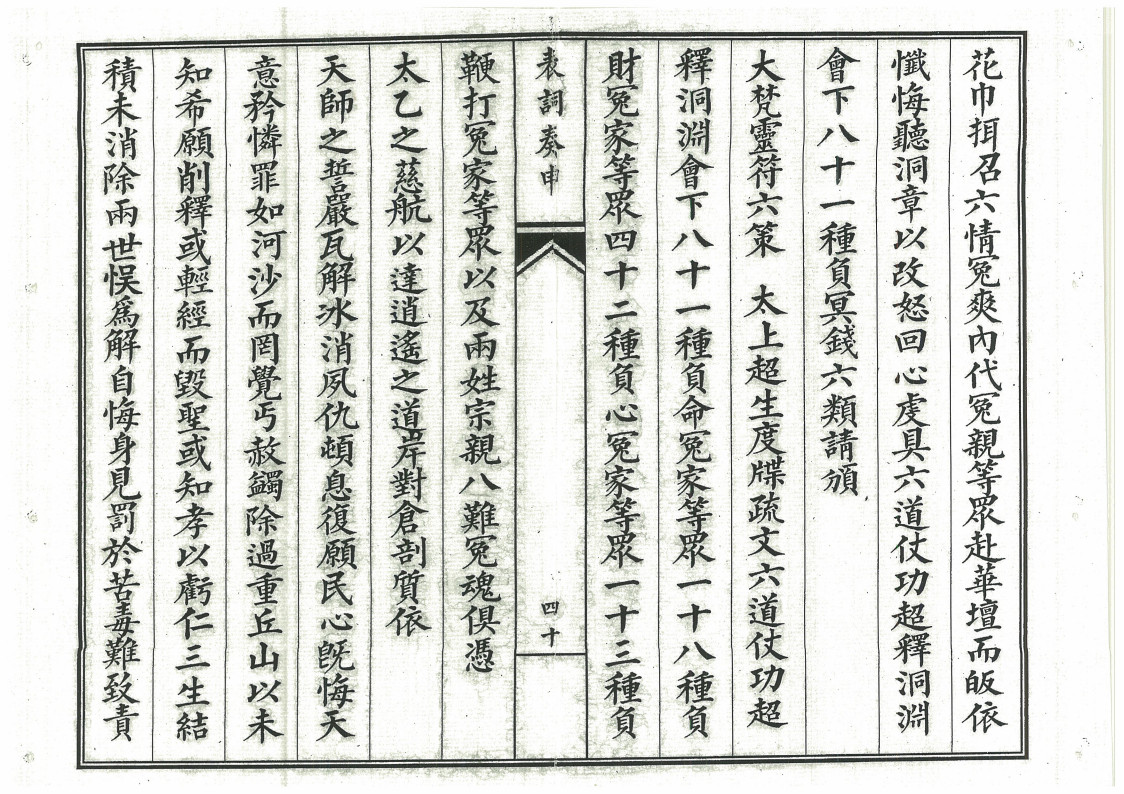 花巾挕召六情冤爽內代冤親等眾赴華壇而皈依
懺悔聽洞章以改怒回心虔具六道仗功超釋洞淵
會下八十一種負冥錢六類請頒
大梵靈符六策　太上超生度牒疏文六道仗功超
釋洞淵會下八十一種負命冤家等眾一十八種負
財冤家等眾四十二種負心冤家等眾一十三種負
表詞奏申
四十
鞭打冤家等眾以及兩姓宗親八難冤魂俱憑
太乙之慈航以達逍遙之道岸對倉剖質依
天師之誓嚴瓦解冰消夙仇頓息復願民心旣悔天
意矜憐罪如河沙而罔覺丐赦蠲除過重丘山以未
知希願削釋或輕經而毀聖或知孝以虧仁三生結
積未消除兩世悮為解自悔身見罰於苦毒難致責